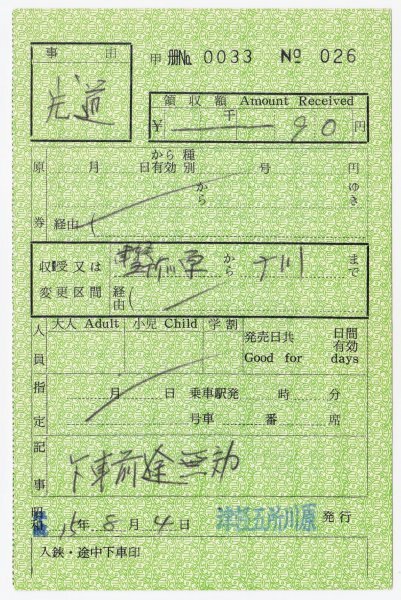 事由 甲 册No. 0033 No 026
先道
領収額 Amount Received
¥ 千 90円
原券 月 日から有効 種別 号 円
から ゆき
経由(
収受又は変更区間 野駅 原 から 十川 まで
経由(
人員 大人 Adult 小児 Child 学割 発売日共 日間有効
Good for days
指定 月 日 乗車駅発 時 分
号車 番 席
記事 下車前途無効
15年 8月 4日 津軽五所川原 発行
入鋏・途中下車印